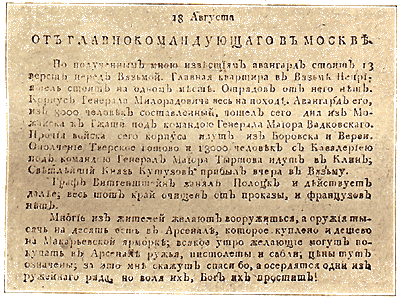 18 Августа
ОТЪ ГЛАВНОКОМАНДУЮЩАГО ВЪ МОСКВѢ.
По полученнымъ мною извѣстіямъ авангардъ стоитъ 13
верстъ передъ Вязьмой. Главная квартира въ Вязьмѣ Непрі-
ятель стоитъ на одномъ мѣстѣ. Отрядовъ отъ него нѣтъ.
Корпусъ Генерала Милорадовича весь на походѣ. Авангардъ его,
изъ 8000 человѣкъ составленный, пошелъ сего дня изъ Мо-
жайска въ Гжать подъ командою Генерала Маіора Вадковскаго.
Прочія войска сего корпуса идутъ изъ Боровска и Вереи.
Ополченіе Тверское готово и 13000 человѣкъ съ Кавалеріею
подъ командою Генералъ Маіора Тыртова идутъ въ Клинъ;
Свѣтлѣйшій Князь Кутузовъ прибылъ вчера въ Вязьму.
Графъ Витгенштейнъ занялъ Полоцкъ и дѣйствуетъ
далѣе; весь тотъ край очищенъ отъ проказы, и французовъ
нѣтъ.
Многіе изъ жителей желаютъ вооружиться, а оружія ты-
сячь на десять есть въ Арсеналѣ, которое куплено и дешево
на Макарьевской ярморкѣ; всякое утро желающіе могутъ по-
купать въ Арсеналѣ ружья, пистолеты и сабли; цѣны тутъ
означены; за это мнѣ скажутъ спасибо, а осердятся одни изъ
ружейнаго ряду, но воля ихъ, Богъ ихъ проститъ!